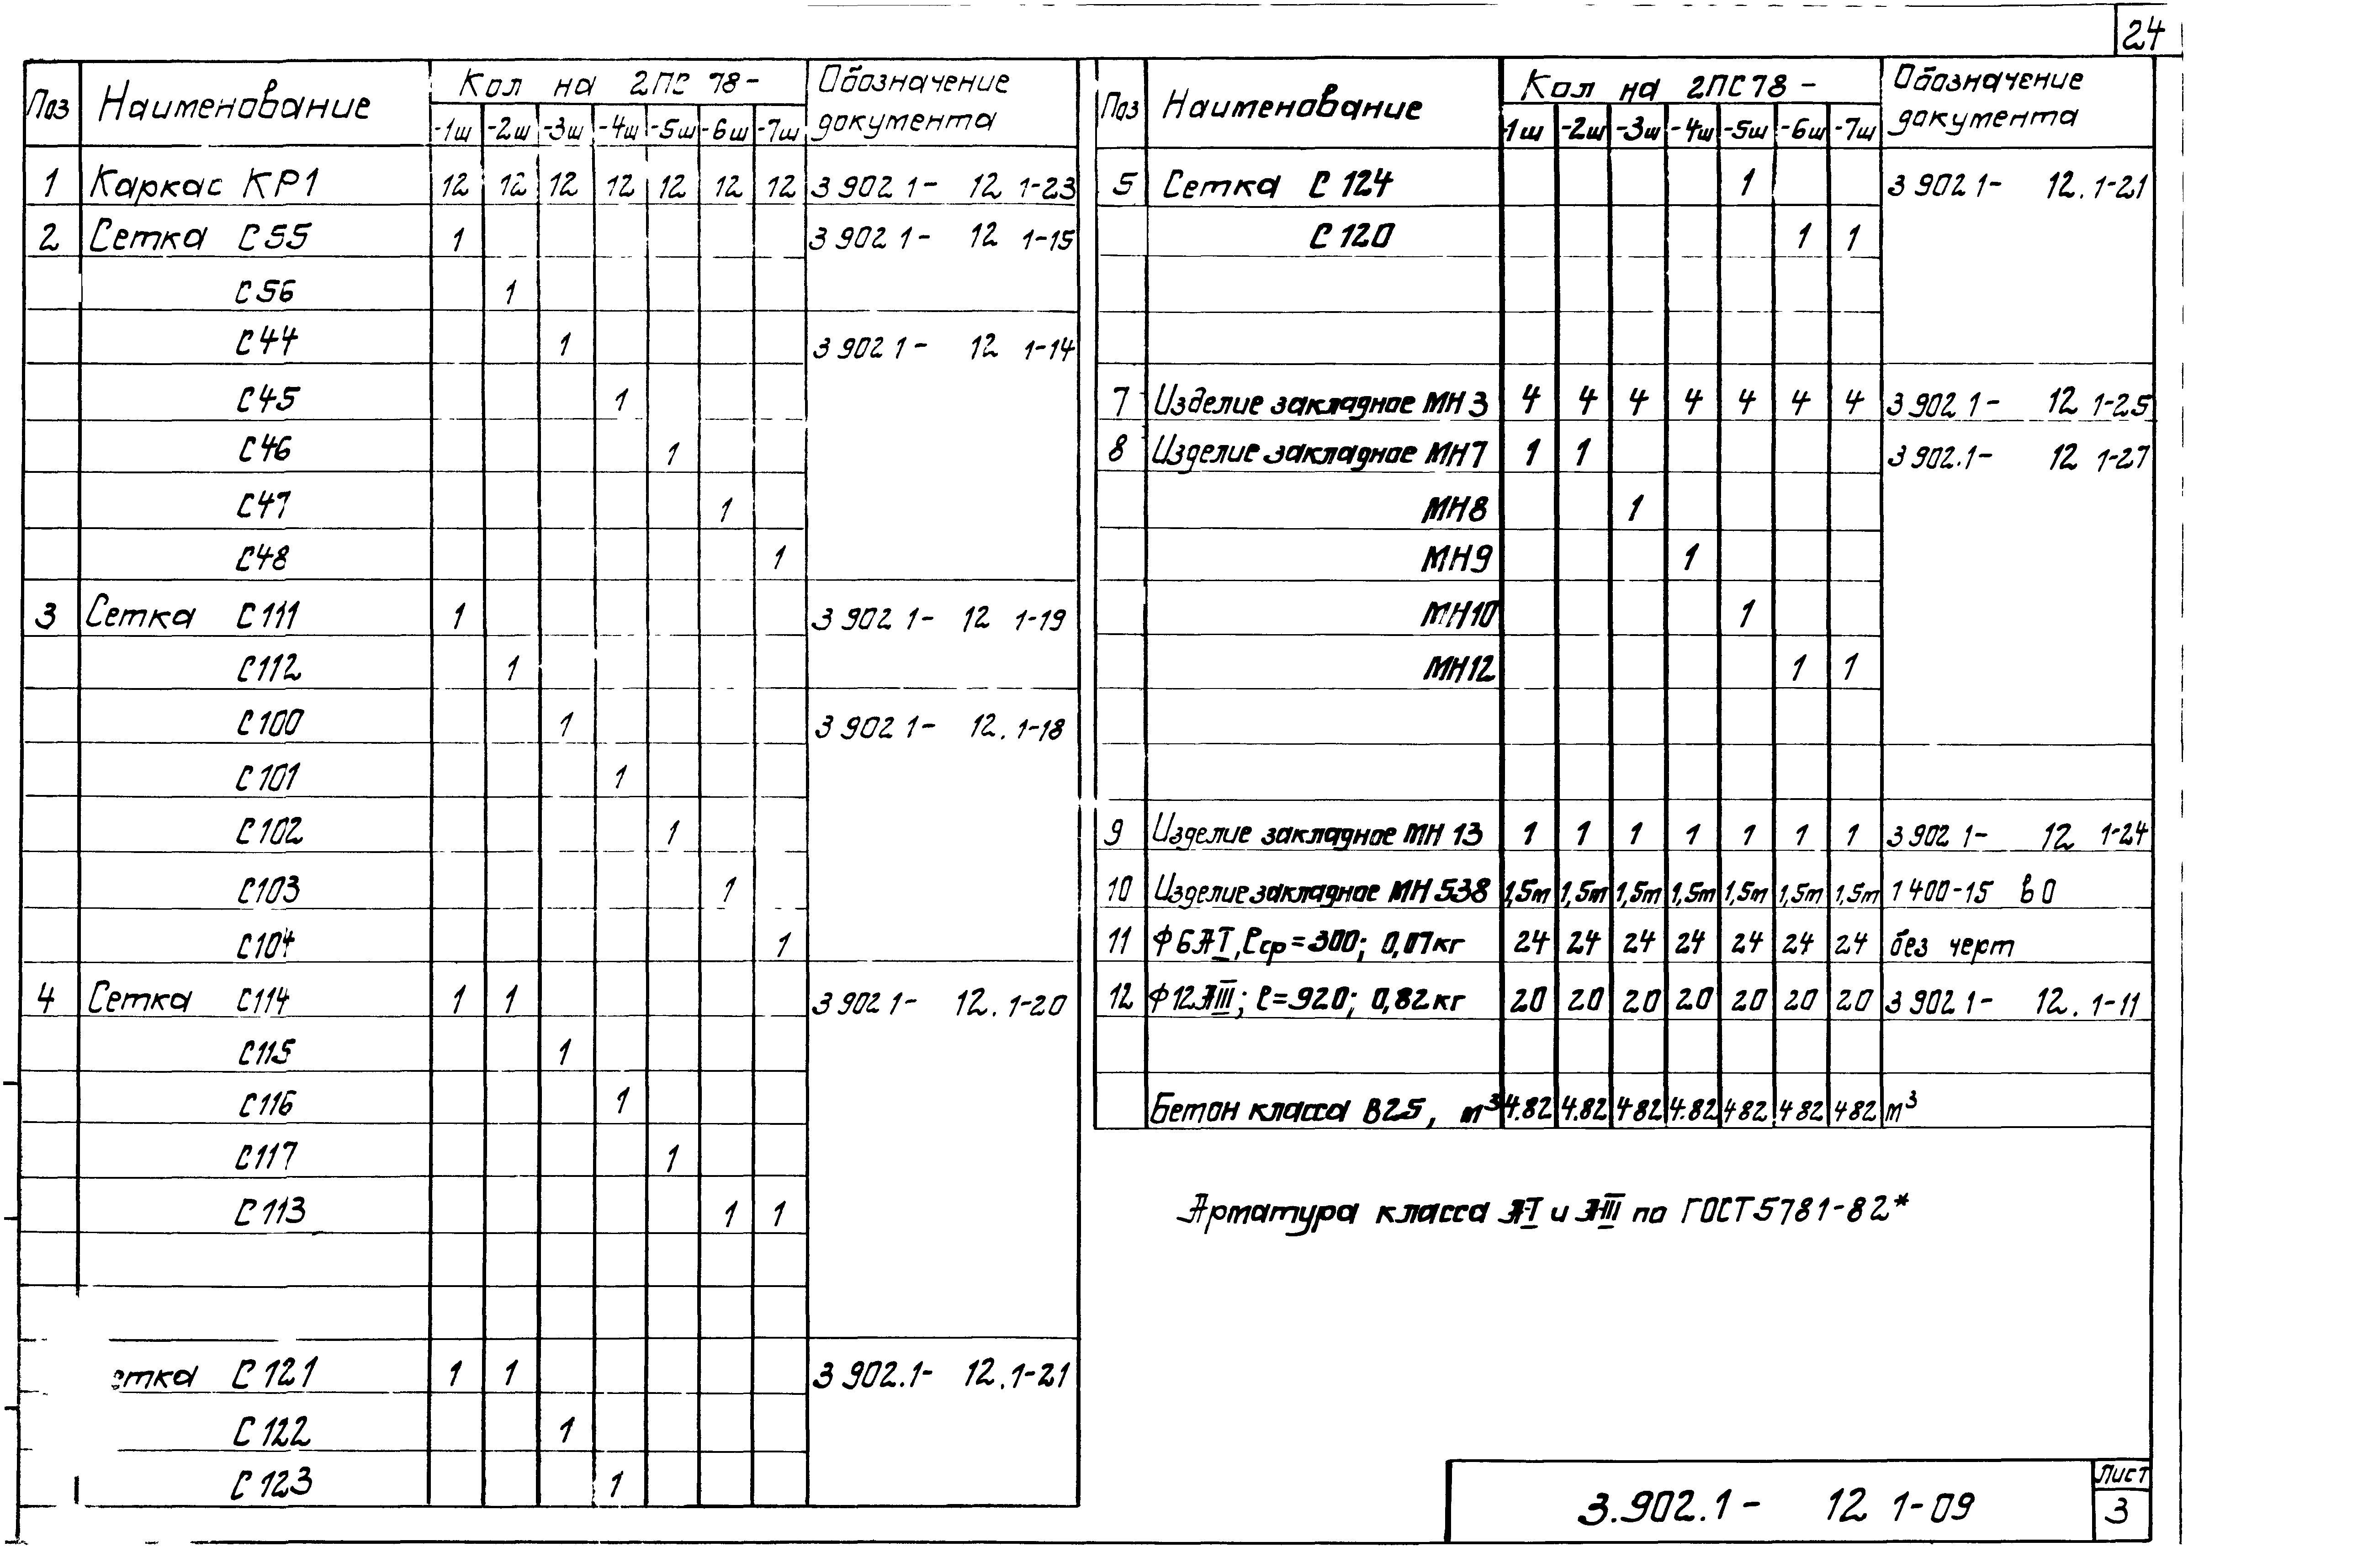 24
Поз Наименование Кол на 2ПС 78- Обозначение документа
-1ш -2ш -3ш -4ш -5ш -6ш -7ш
1 Каркас КР1 12 12 12 12 12 12 12 3 902 1- 12 1-23
2 Сетка С55 1 3 902 1- 12 1-15
С56 1
С44 1 3 902 1- 12 1-14
С45 1
С46 1
С47 1
С48 1
3 Сетка С111 1 3 902 1- 12 1-19
С112 1
С100 1 3 902 1- 12. 1-18
С101 1
С102 1
С103 1
С104 1
4 Сетка С114 1 1 3 902 1- 12. 1-20
С115 1
С116 1
С117 1
С113 1 1
етка С121 1 1 3 902.1- 12.1-21
С122 1
С123 1
Поз Наименование Кол на 2ПС78- Обозначение документа
-1ш -2ш -3ш -4ш -5ш -6ш -7ш
5 Сетка С124 1 3 902 1- 12.1-21
С120 1 1
7 Изделие закладное МН3 4 4 4 4 4 4 4 3 902 1- 12 1-25
8 Изделие закладное МН7 1 1 3 902.1- 12 1-27
МН8 1
МН9 1
МН10 1
МН12 1 1
9 Изделие закладное МН 13 1 1 1 1 1 1 1 3 902 1- 12 1-24
10 Изделие закладное МН 538 1,5м 1,5м 1,5м 1,5м 1,5м 1,5м 1,5м 1 400-15 в0
11 Ф6АI, ℓср=300; 0,07кг 24 24 24 24 24 24 24 без черт
12 Ф12АIII; ℓ=920; 0,82кг 20 20 20 20 20 20 20 3 902 1- 12. 1-11
Бетон класса В25, м³ 4.82 4.82 4 82 4.82 4 82 4 82 4 82 м³
Арматура класса АI и АIII по ГОСТ 5781-82*
3.902.1- 12 1-09
Лист
3